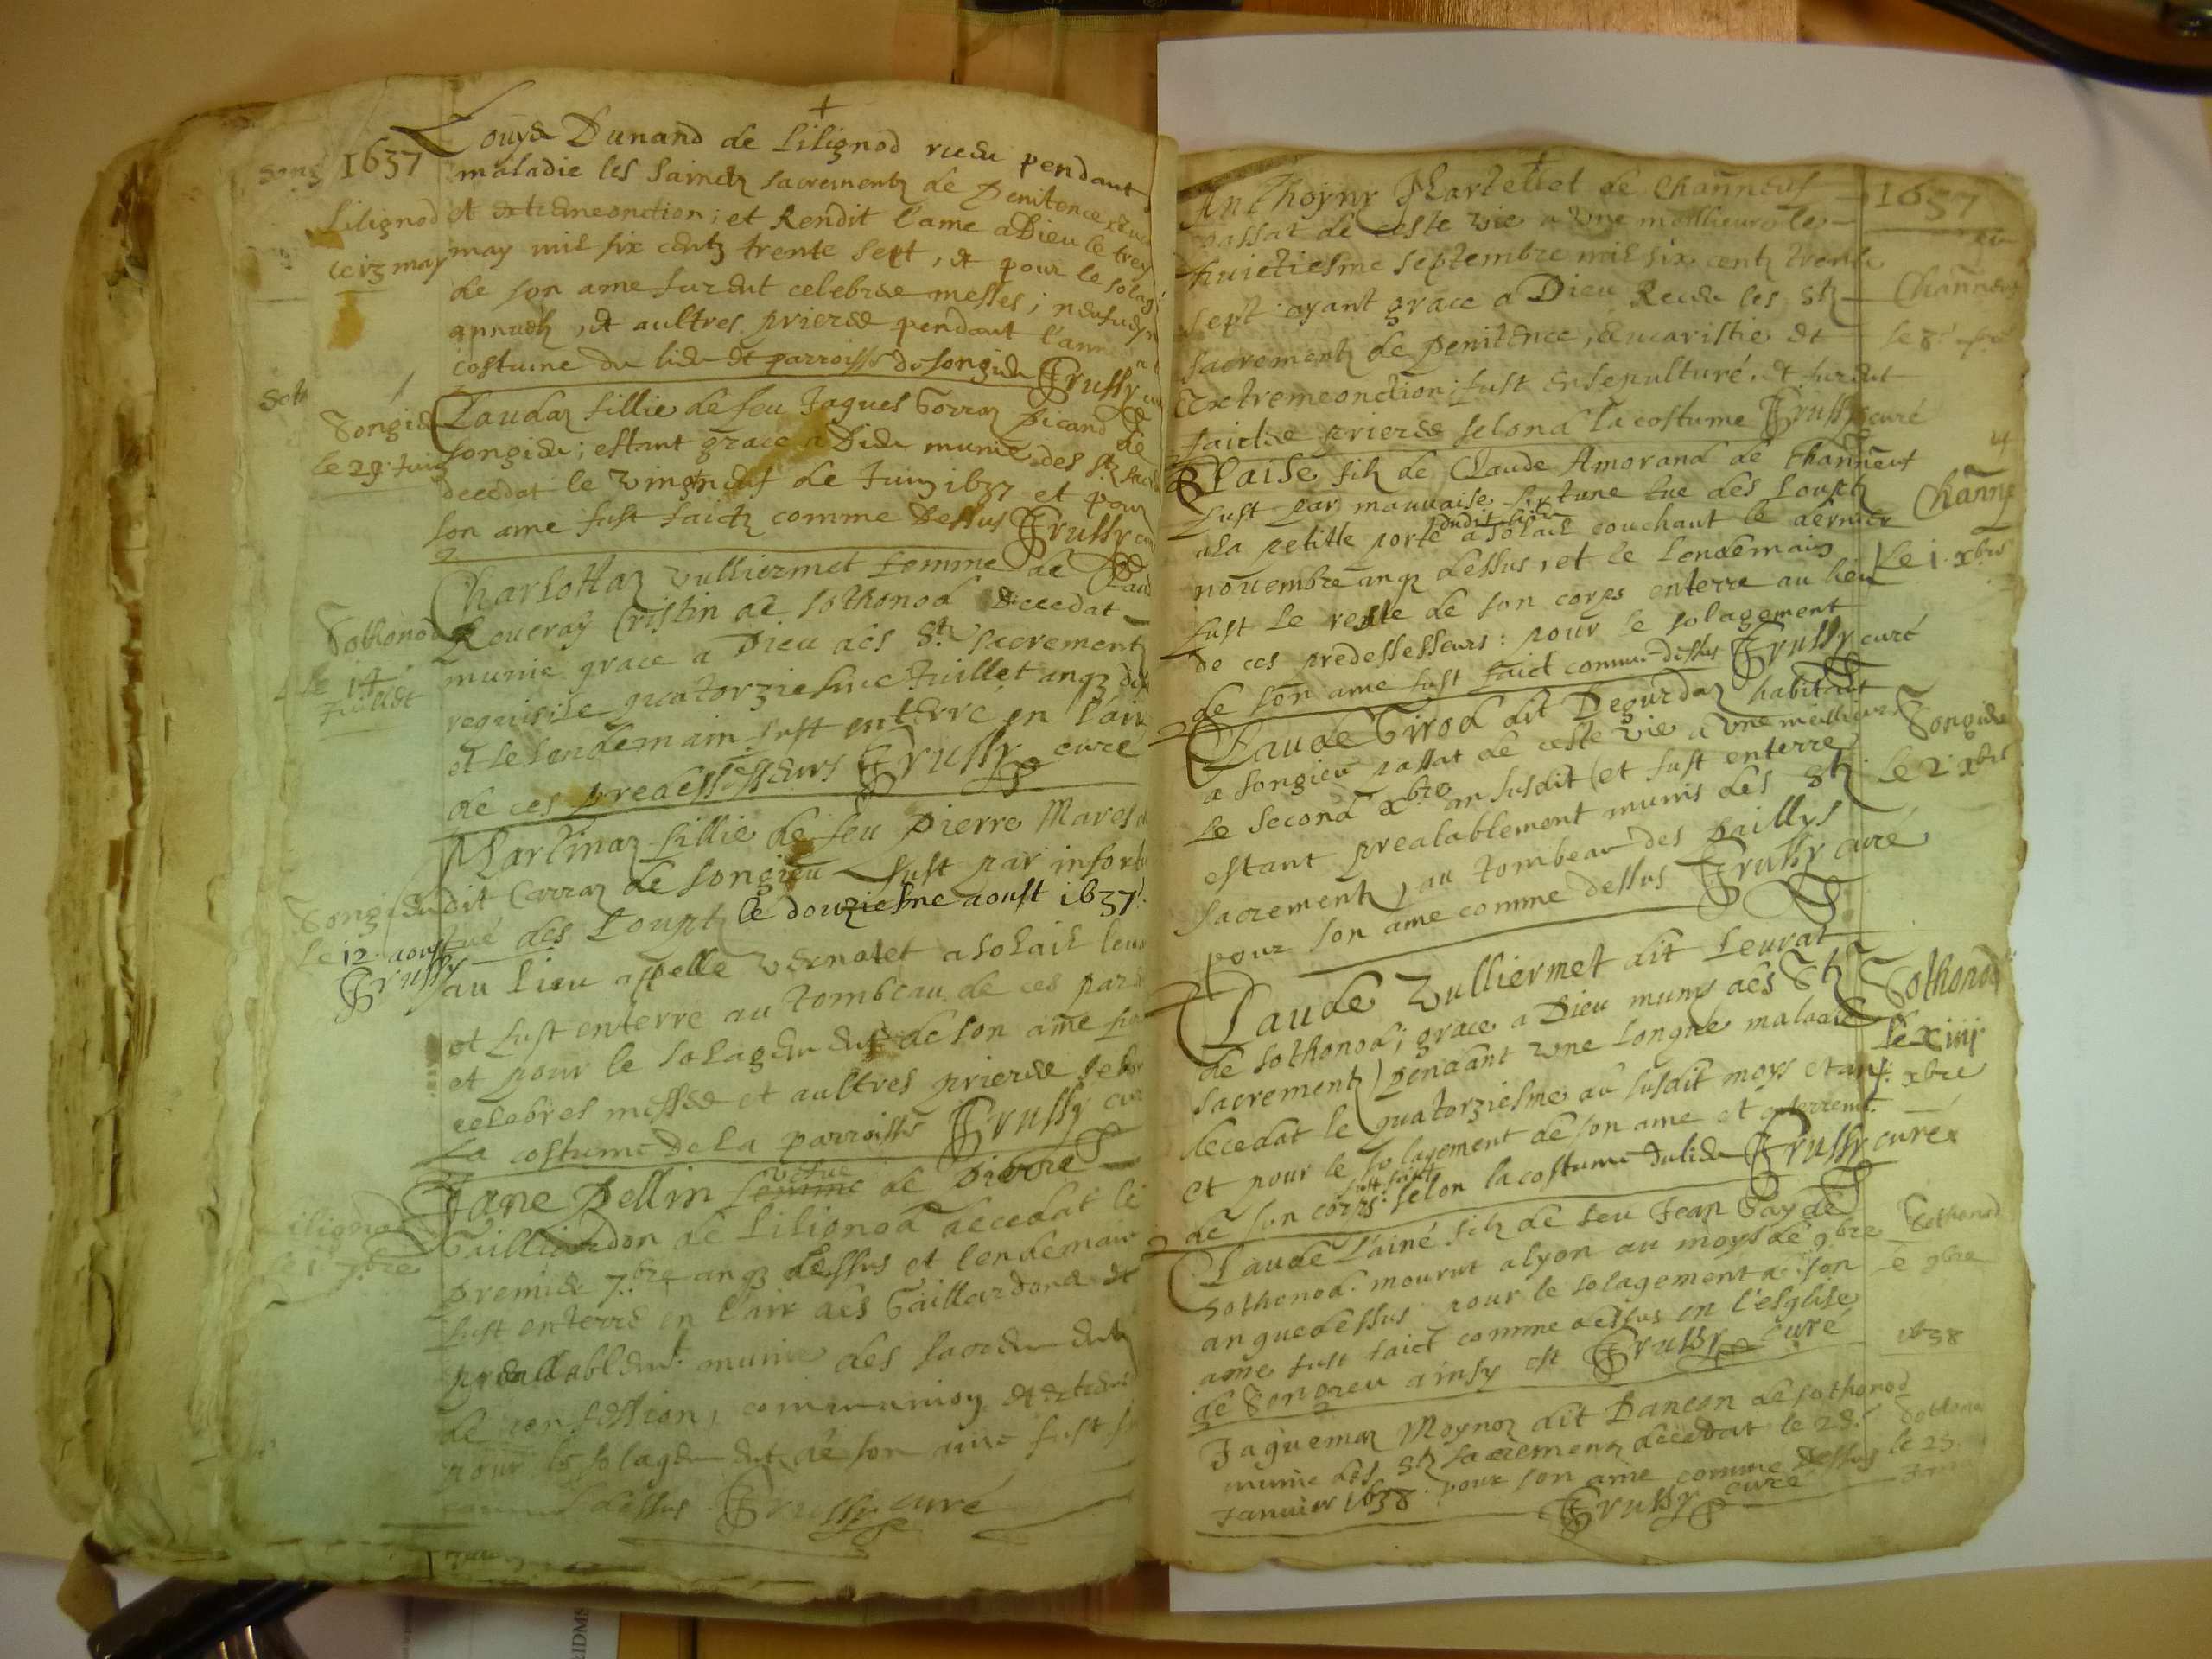 1637
Louyse Dunand de Lilignod receu pendant
maladie les Sainctz sacrementz de Penitence
Lilignod
et extremeonction; et Rendit l'ame a Dieu le trez
le 13 may
may mil six centz trente sept, et pour le solag
de son ame furent celebrees messes; neufuesn
annuelz, et aultres prieres pendant l'ann
costume du lieu et parroisse de songieu Trussy
Songieu
Claudaz fillie de feu Jaques Gorraz Picand de
le 29 Juin
songieu; estant grace a Dieu munie des Stz sac
decedat le vingtneuf de Juin 1637 et pour
son ame fust faictz comme Dessus Trussy
Charlottaz Vulliermet femme de Claud
Sothonod
Roueray Cristin de sothonod Decedat
le 14 Juillet
munie grace a Dieu des Stz sacrement
requisite quatorziesme Juillet anq des
et le lendemain fust enterré en l'air
de ces predessesseurs Trussy curé
Martinaz fillie de feu Pierre Mares
Songieu
dit Carraz de songieu fust par infort
le 12 aoust
tué des Louptz le douziesme aoust 1637
Trussy
au lieu appelle vernatet a solail leua
et fust enterre au tombeau de ces par
et pour le solagement de son ame fu
celebres messes et aultres prieres selon
La costume de La parroisse Trussy cur
Jane Pellin femme vefue de Pierre
ilignod
Gailliardon de Lilignod decedat le
le 1 7.bre
premier 7.bre anq dessus et lendemain
fust enterre en l'air des Gaillardons et
preallablemt. munie des sacrementz
de confession, communion et extreme
pour le solagement de son ame fust f
comme dessus Trussy curé
Anthoyne Martellet de Channeuf
1637
passat de ceste vie a une mellieure le
huictiesme septembre mil six centz trente
Channeuf
sept ayant grace a Dieu Receu les Stz
le 8e
sacrementz de penitence, eucaristie et
Extremeonction; fust ensepulturé, et furent
faictes prieres selond la costume Trussy curé
4
Blaise filz de Claude Amorand de Channeuf
Channe
fust par mauuaise fortune tue des Louptz
a la petitte porte dudit lieu a solail couchant le dernier
nouembre anq dessus, et le Lendemain
le 1. xbre
fust le reste de son corps enterre au lieu
de ces predessesseurs: pour le solagement
de son ame fust faict comme dessus Trussy curé
Claude Girod dit Degurdaz habitant
Songieu
a songieu passat de ceste vie a une mellieure
le 2 xbre
le second xbre an susdit (et fust enterre
estant prealablement munis des Stz
sacrementz) au tombeau des Paillys
pour son ame comme dessus Trussy curé
Claude Vulliermet dit Leurat
Sothonod
de sothonod; grace a Dieu munys des Stz
le xiiij xbre
sacrementz) pendant une longue maladie
decedat le quatorziesme au susdit moys et an
et pour le solagement de son ame et enterremt.
de son corps fust faict selon la costume du lieu Trussy curé
Claude L'ainé filz de feu Jean Gay de
Sothonod
Sothonod mourut a lyon au moys de 9bre
9bre
anque dessus pour le solagement de son
ame fust faict comme dessus en l'esglise
de Songieu ainsy est Trussy curé
1638
Jaquemaz Moynoz dit Dancon de sothonod
Sothono
munie des Stz sacrementz decedat le 25e
le 25
Januier 1638 pour son ame comme dessus
Trussy curé